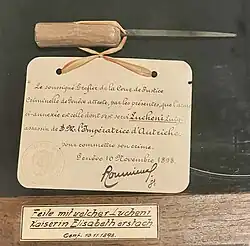 Le soussigné Greffier de la Cour de Justice
Criminelle de Genève atteste, par les présentes, que l'arme
ci-annexée est celle dont s'est servi Lucheni Luigi
assassin de S. M. l'Impératrice d'Autriche
pour commettre son crime.
Genève 10 Novembre 1898.
Feile mit welcher Lucheni
Kaiserin Elisabeth erstach
Genf. 10.11.1898.